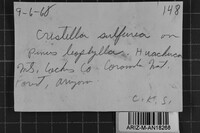 9-6-68 148
Cristella sulfurea on
Pinus leiophylla, Huachuca
Mts, Cochise Co. Coronado Nat.
Forest, Arizona
ARIZ-M-AN18268